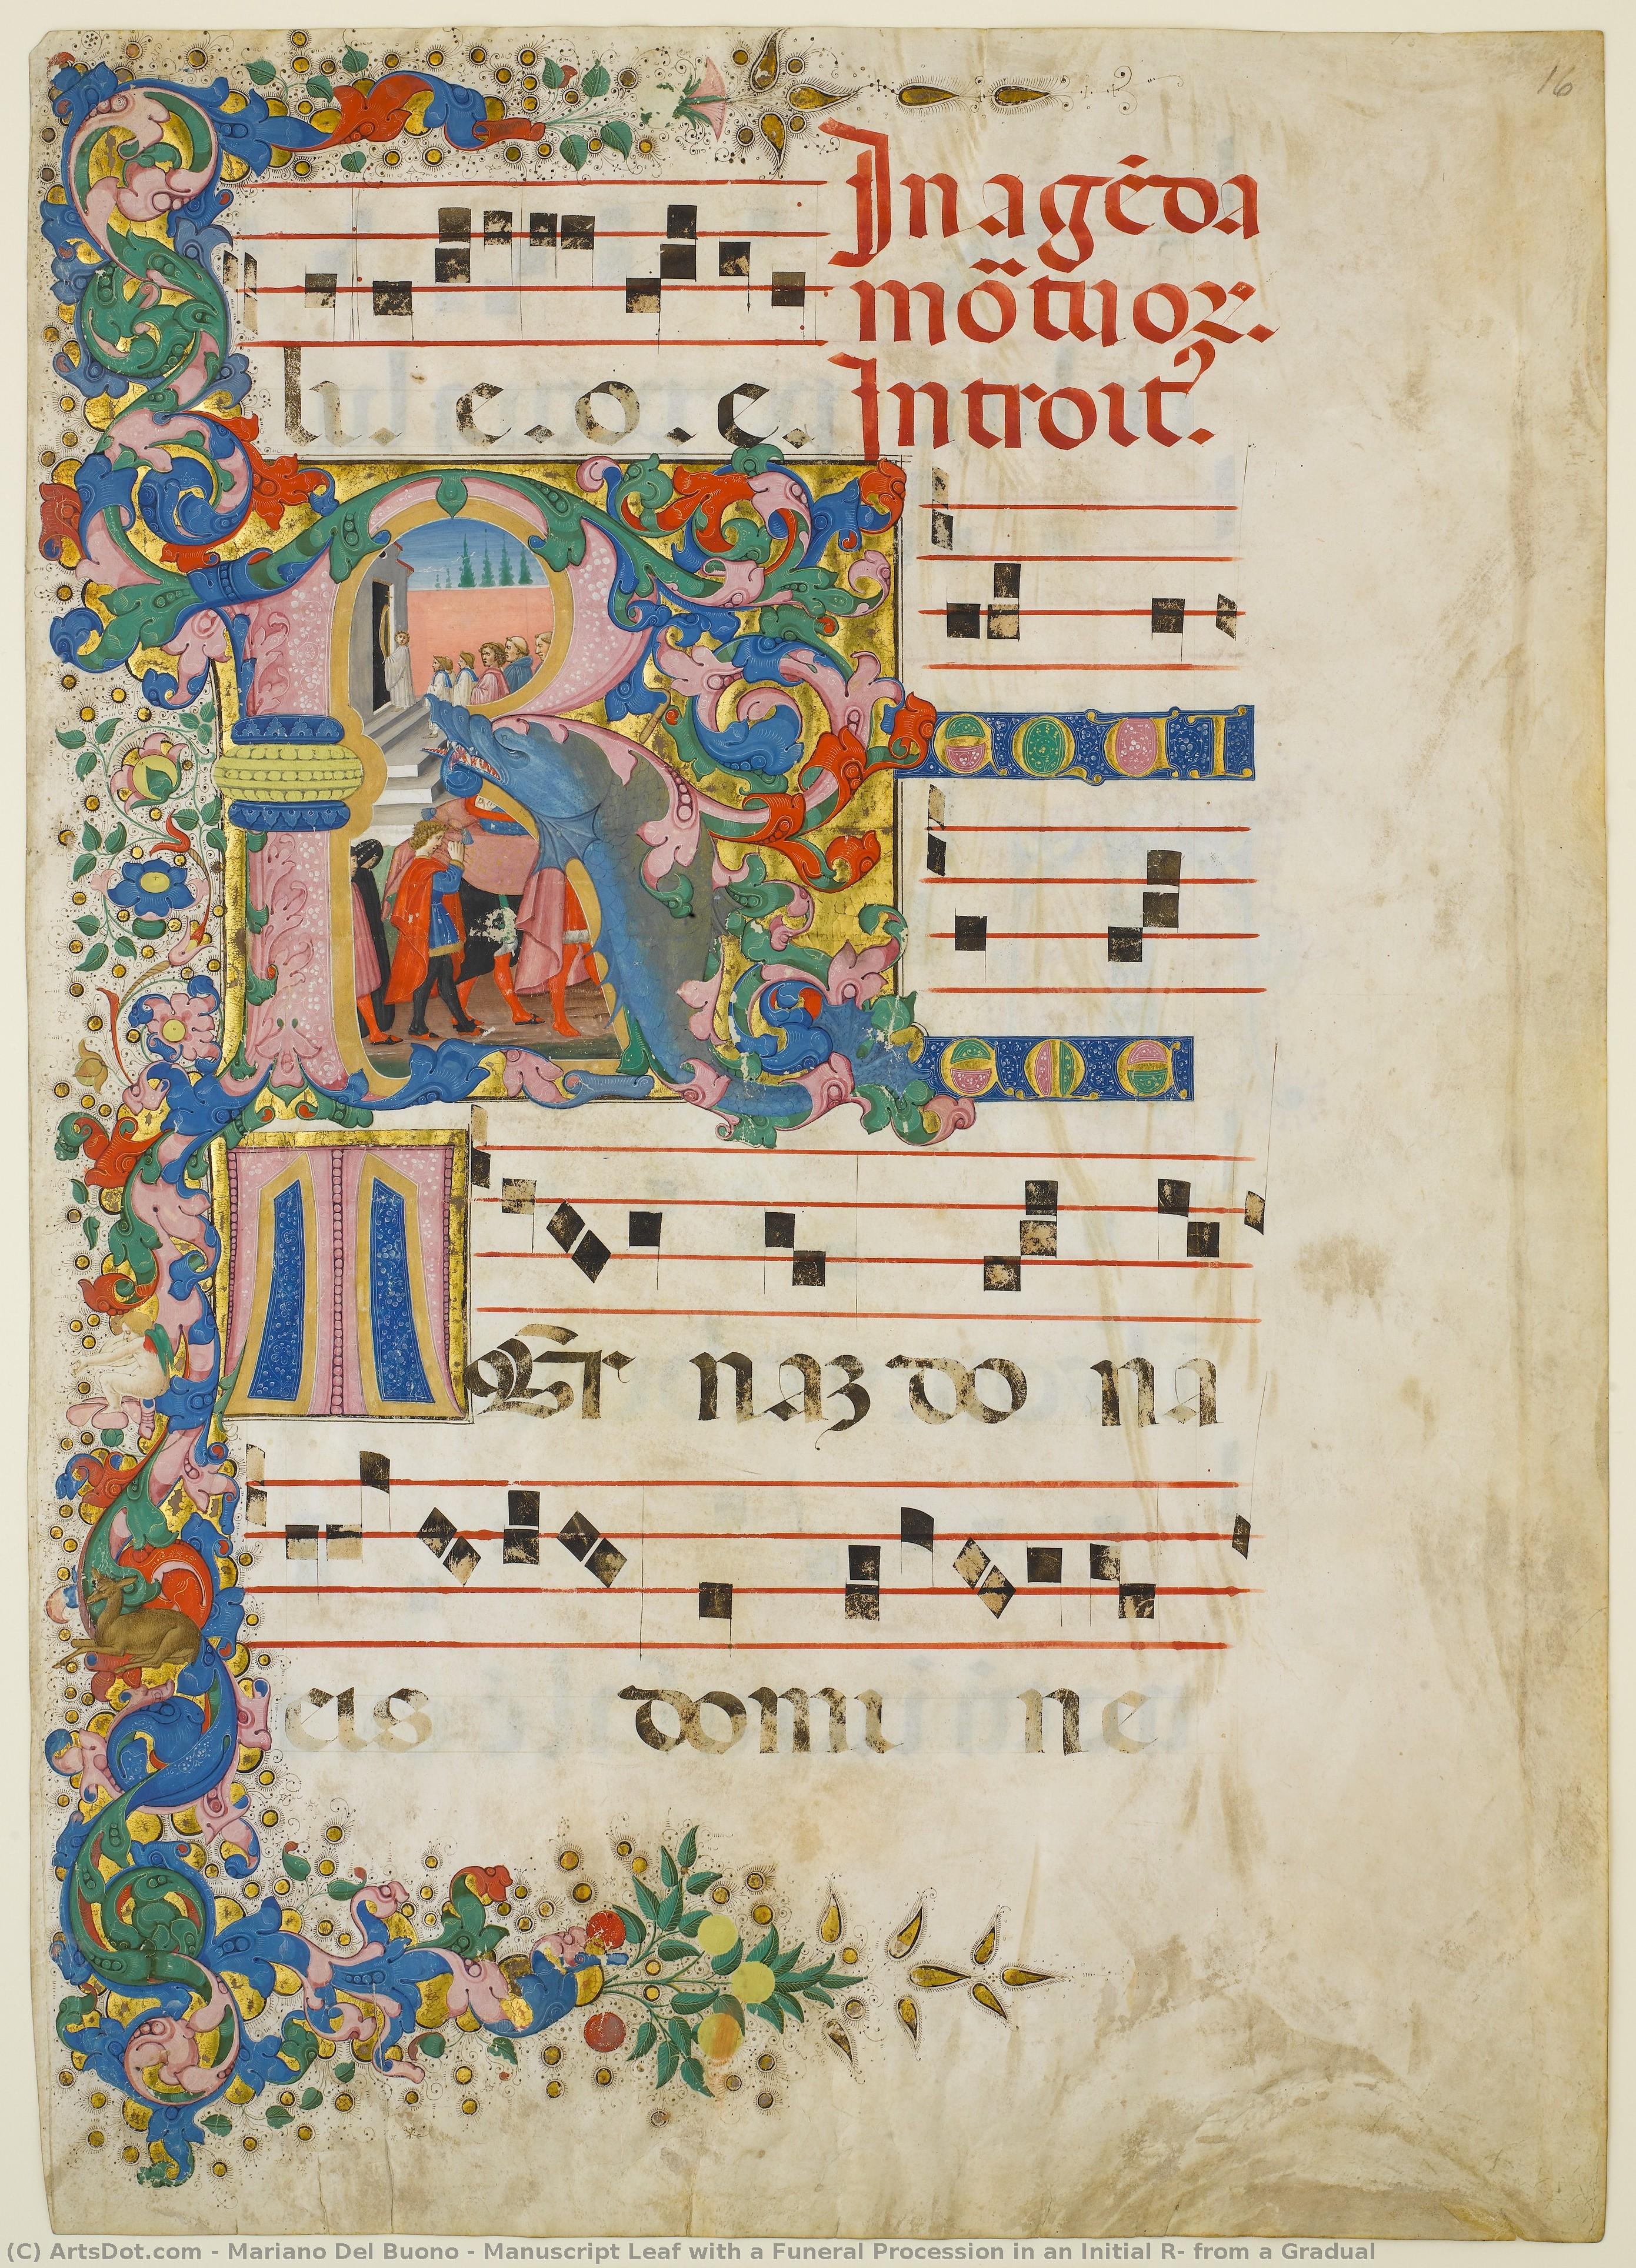 16
In agēda
mõtuoꝝ.
Introit᾽.
li. e. o. e.
R equi
em e
ter naz do na
eis domi ne
(C) ArtsDot.com - Mariano Del Buono - Manuscript Leaf with a Funeral Procession in an Initial R- from a Gradual